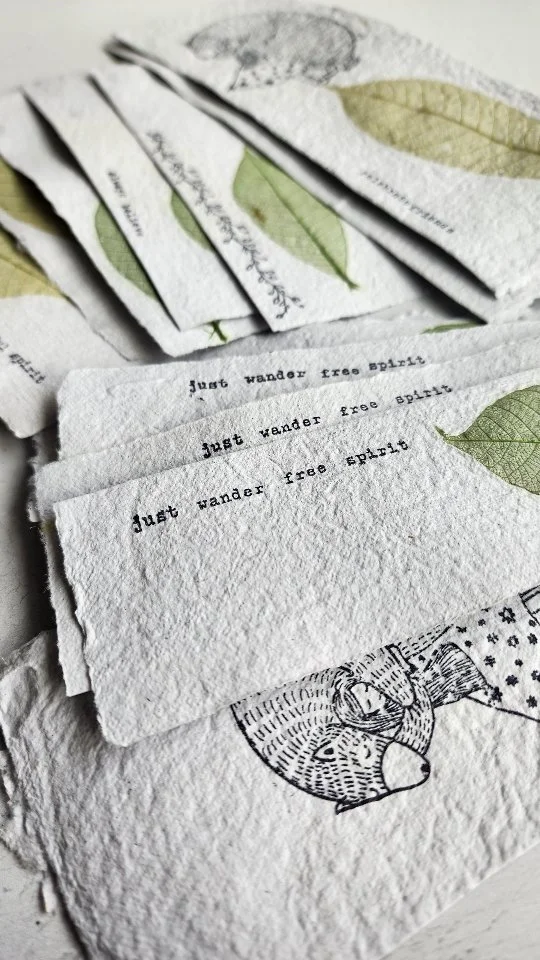 just wander free spirit
just wander free spirit
just wander free spirit
spirit